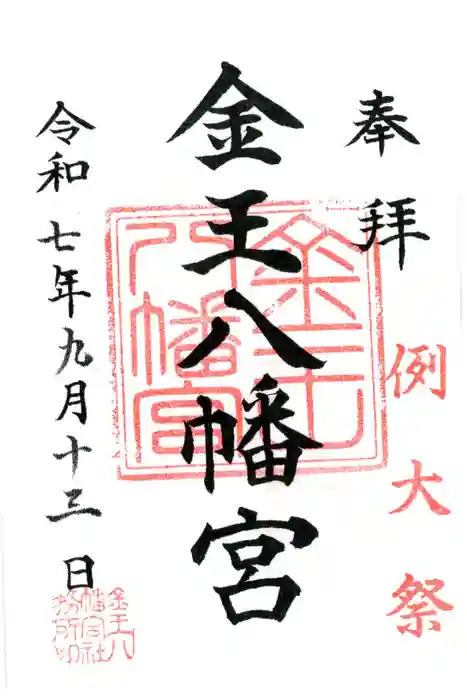 奉拝
例大祭
金王八幡宮
金王八幡宮
令和七年九月十三日
金王八幡宮社務所印